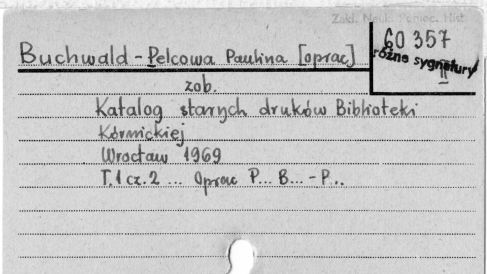 Zakł. Nauk. Pomoc. Hist.
60 357
różne sygnatury
II
Buchwald-Pelcowa Paulina [oprac]
zob.
Katalog starych druków Biblioteki
Kórnickiej
Wrocław 1969
T.1 cz.2 ... Oprac P... B...-P...